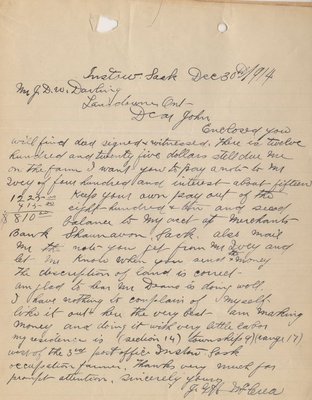 Instow Sask Dec 30th/1914
Mr J.D.W. Darling
Lansdowne Ont-
Dear John
Enclosed you
will find ded signed & witnessed. There is twelve
hundred and twenty five dollars still due me
on the farm I want you to pay a note to Mr
Ivey of four hundred and interest about fifteen
1225.00 Keep your own pay out of the
415.00 eight hundred & ten and send
$ 810.00 balance to my acct at Merchants
Bank Shaunavon Sask. also mail
me the note you get from Mr Ivey and
let me know when you send the money
The description of land is correct-
am glad to hear Mr Deane is doing well.
I have nothing to complain of myself.
like it out here the very best am making
money and doing it with very little labor
my residence is (section 14) township 9 (range 17)
west of the 3rd post office Instow Sask
occupation farmer. Thanks very much for
prompt attention. Sincerely yours
McCrea